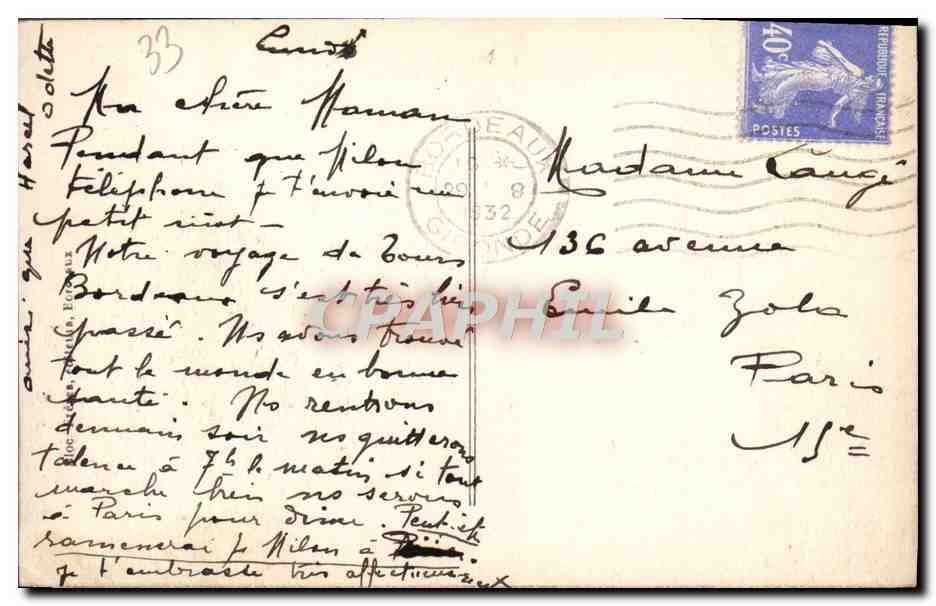 33
Lundi
Ma chère Maman
Pendant que Milou
téléphone je t'envoie un
petit mot –
Notre voyage de Tours
Bordeaux s'est très bien
passé. Ns avons trouvé
tout le monde en bonne
santé. Ns rentrons
demain soir ns quitterons
Talence à 7h le matin si tout
marche bien ns serons
à Paris pour dîner. Peut-êt
ramènerai je Milou à
je t'embrasse très affectueusement
ainsi que Marcel
Odette
BORDEAUX
29 8
1932
GIRONDE
REPUBLIQUE FRANÇAISE
40c
POSTES
Madame Laugé
136 avenue
Emile Zola
Paris
15e
CRAPHIL